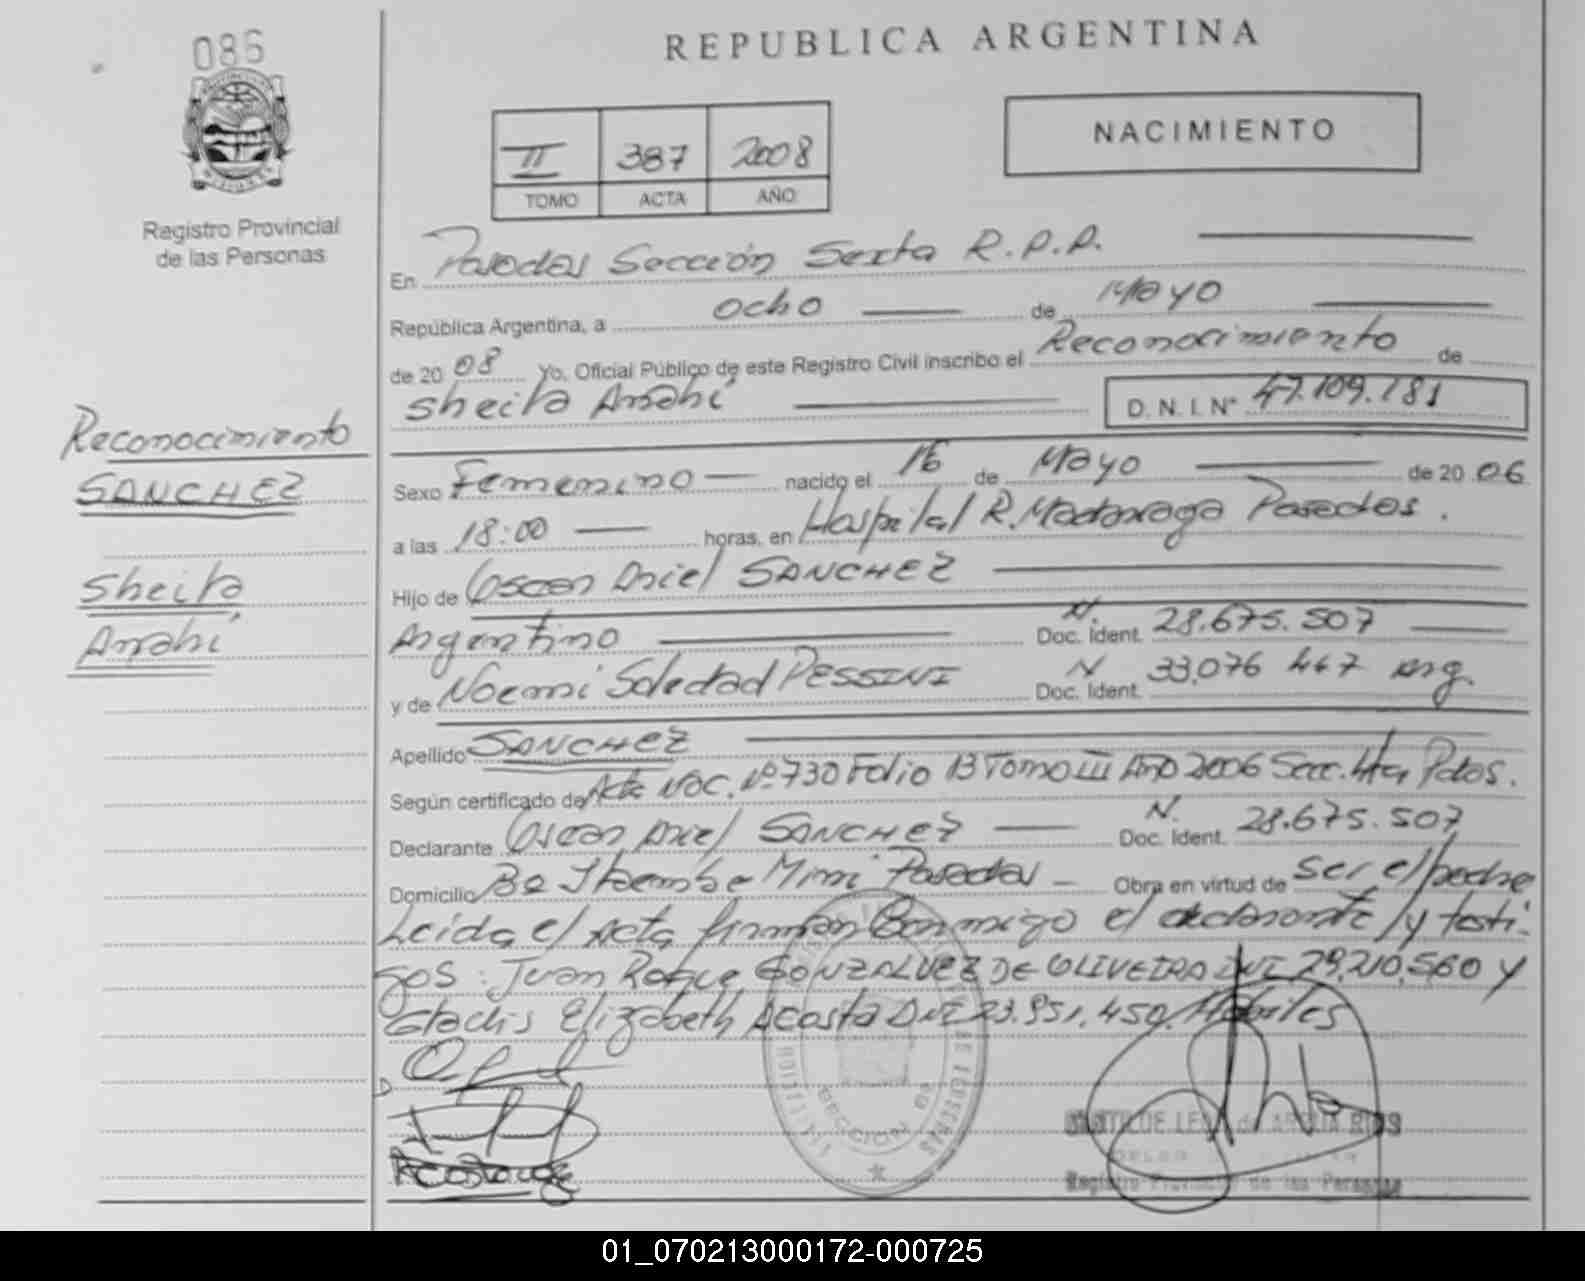 086
REPUBLICA ARGENTINA
Registro Provincial
de las Personas
II 387 2008
TOMO ACTA AÑO
NACIMIENTO
En Posadas Sección Sexta R.P.P.
República Argentina, a ocho de Mayo
de 2008 Yo, Oficial Público de este Registro Civil inscribo el Reconocimiento de
Sheila Anahí D. N. I. Nº 47.109.781
Reconocimiento
SANCHEZ
Sheila
Anahí
Sexo Femenino nacido el 16 de Mayo de 2006
a las 18:00 horas, en Hospital R. Madariaga Posadas.
Hijo de Oscar Ariel SANCHEZ
Argentino Doc. Ident. N. 28.675.507
y de Noemi Soledad PESSINI Doc. Ident. N 33.076 447 Arg.
Apellido SANCHEZ
Según certificado de Acta Nac. Nº 730 Folio 13 Tomo III Año 2006 Secc. 4ta Pdas.
Declarante Oscar Ariel SANCHEZ Doc. Ident. N. 28.675.507
Domicilio Bº Itaembe Mini Posadas Obra en virtud de ser el padre
Leida el Acta firman Conmigo el declarante y testi-
gos: Juan Roque GONZALVEZ DE OLIVEIRA DNI 29.210.560 y
Gladis Elizabeth Acosta DNI 23.951.450. Hábiles
SECCION 6ª
Registro Provincial de las Personas
01_070213000172-000725